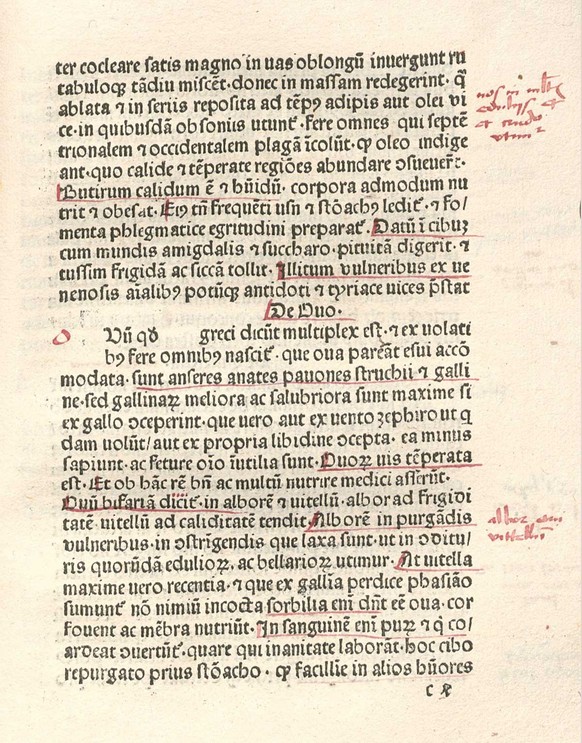 ter cocleare satis magno in uas oblongū inuergunt ru
tabuloqꝫ tādiu miscēt·donec in massam redegerint· q̄
ablata ⁊ in seriis reposita ad tēpꝰ adipis aut olei vi
ce·in quibusdā obsoniis utunt̄· fere omnes qui septē
trionalem ⁊ occidentalem plagā īcolūt· ꝙ oleo indige
ant· quo calide ⁊ tēperate regiōes abundare ꝯsueuerūt·
Butirum calidum ē ⁊ hūidū· corpora admodum nu
trit ⁊ obesat· Eiꝰ tn̄ frequēti usu ⁊ stōachꝰ ledit̄· ⁊ fo/
menta phlegmatice egritudini preparat̄· Datū ī cibuꝫ
cum mundis amigdalis ⁊ succharo· pituitā digerit· ⁊
tussim frigidā ac siccā tollit· Illitum vulneribus ex ue
nenosis aīalibꝰ potūqꝫ antidoti ⁊ tyriace uices p̄stat
De Ouo·
o
Vū qd̄ greci dicūt multiplex est·⁊ ex volati
bꝰ fere omnibꝰ nascit̄· que oua pareāt esui accō
modata· sunt anseres anates pauones struchii ⁊ galli
ne·sed gallinaꝝ meliora ac salubriora sunt maxime si
ex gallo ꝯceperint· que uero aut ex vento zephiro ut q
dam uolūt/aut ex propria libidine ꝯcepta· ea minus
sapiunt· ac feture oīo īutilia sunt· Ouoꝝ uis tēperata
est· Et ob hāc rē bn̄ ac multū nutrire medici asserūt·
Ouū bifariā dicit̄· in alborē ⁊ uitellū· albor ad frigidi
tatē uitellū ad caliditatē tendit· Alborē in purgādis
vulneribus·in ꝯstrīgendis que laxa sunt·ut in ꝯditu/
ris quorūdā edulioꝝ, ac bellarioꝝ utimur· At uitella
maxime uero recentia· ⁊ que ex gallīa perdice phasiāo
sumunt̄ nō nimiū incocta sorbilia em̄ dn̄t eē oua· cor
fouent ac mēbra nutriūt· In sanguinē em̄ puꝝ ⁊ q̄ co/
ardeat ꝯuertūt̄· quare qui inanitate laborāt·hoc cibo
repurgato prius stōacho· ꝙ facillīe in alios hūores